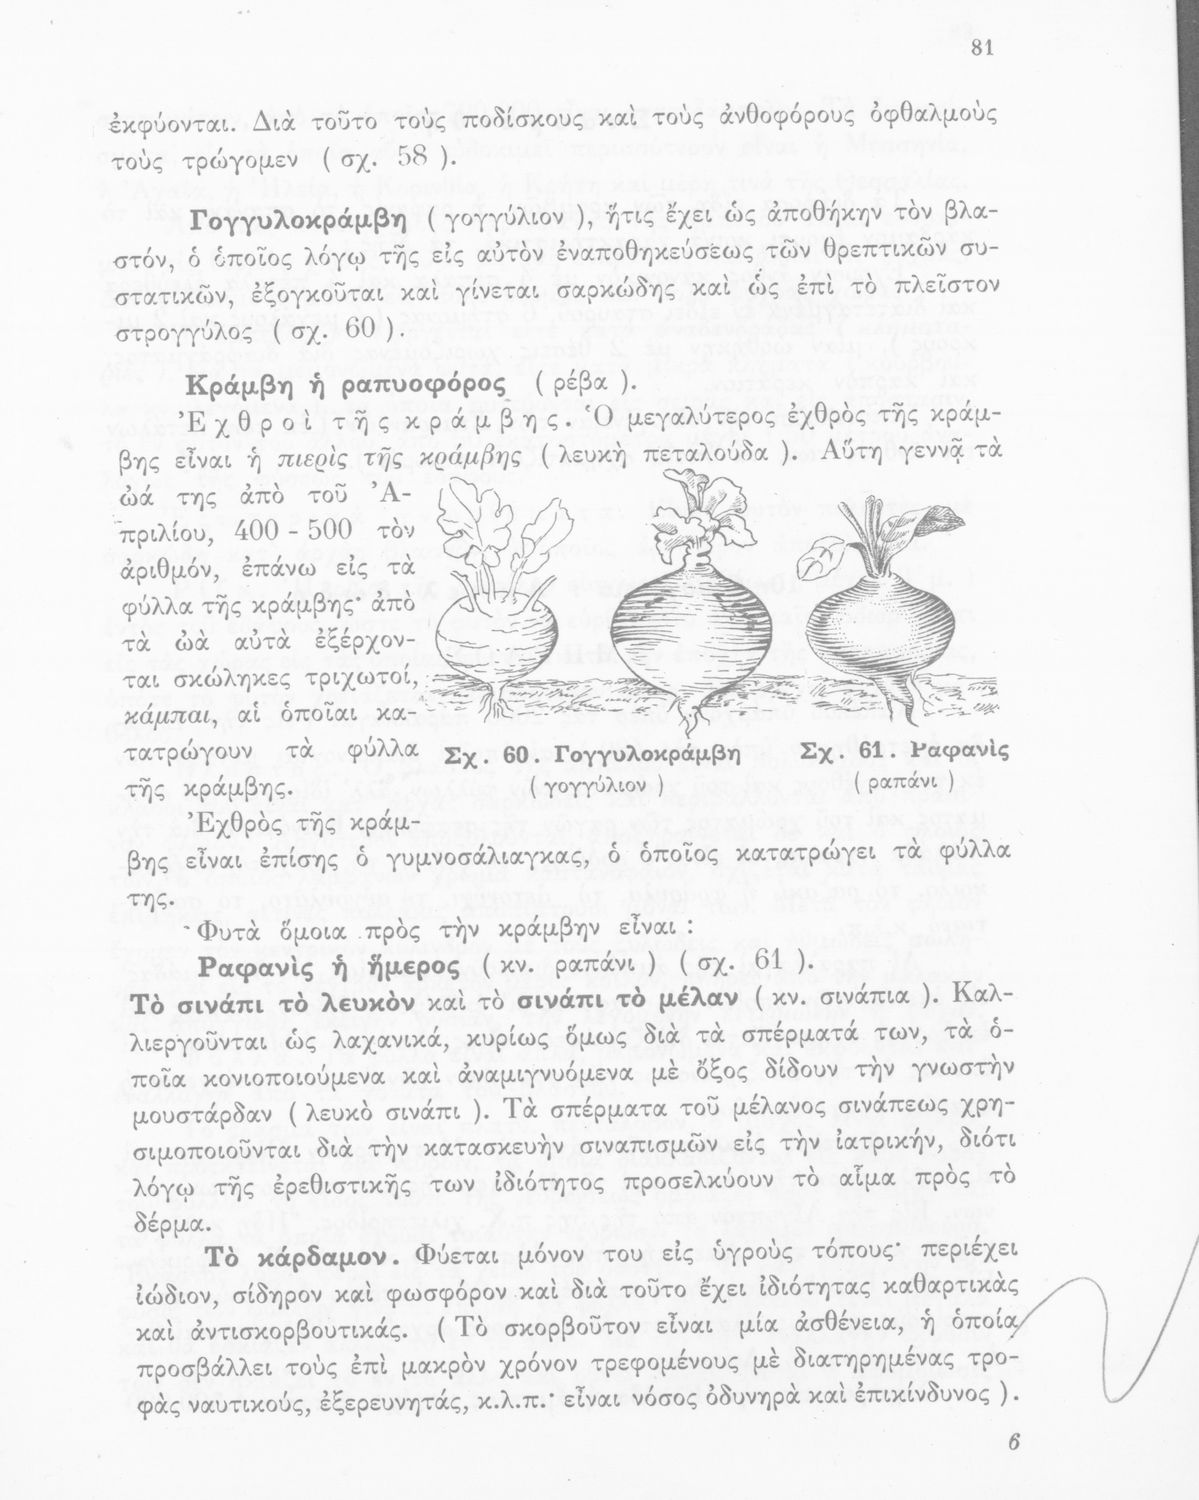 81
ἐκφύονται. Διὰ τοῦτο τοὺς ποδίσκους καὶ τοὺς ἀνθοφόρους ὀφθαλμοὺς
τοὺς τρώγομεν ( σχ. 58 ).
Γογγυλοκράμβη ( γογγύλιον ), ἥτις ἔχει ὡς ἀποθήκην τὸν βλα-
στόν, ὁ ὁποῖος λόγῳ τῆς εἰς αὐτὸν ἐναποθηκεύσεως τῶν θρεπτικῶν συ-
στατικῶν, ἐξογκοῦται καὶ γίνεται σαρκώδης καὶ ὡς ἐπὶ τὸ πλεῖστον
στρογγύλος ( σχ. 60 ).
Κράμβη ἡ ραπυοφόρος ( ρέβα ).
Ἐχθροὶ τῆς κράμβης. Ὁ μεγαλύτερος ἐχθρὸς τῆς κράμ-
βης εἶναι ἡ πιερὶς τῆς κράμβης ( λευκὴ πεταλούδα ). Αὕτη γεννᾷ τὰ
ὠά της ἀπὸ τοῦ Ἀ-
πριλίου, 400 - 500 τὸν
ἀριθμόν, ἐπάνω εἰς τὰ
φύλλα τῆς κράμβης· ἀπὸ
τὰ ὠὰ αὐτὰ ἐξέρχον-
ται σκώληκες τριχωτοί,
κάμπαι, αἱ ὁποῖαι κα-
τατρώγουν τὰ φύλλα
τῆς κράμβης.
Σχ. 60. Γογγυλοκράμβη
( γογγύλιον )
Σχ. 61. Ραφανὶς
( ραπάνι )
Ἐχθρὸς τῆς κράμ-
βης εἶναι ἐπίσης ὁ γυμνοσάλιαγκας, ὁ ὁποῖος κατατρώγει τὰ φύλλα
της.
Φυτὰ ὅμοια πρὸς τὴν κράμβην εἶναι :
Ραφανὶς ἡ ἥμερος ( κν. ραπάνι ) ( σχ. 61 ).
Τὸ σινάπι τὸ λευκὸν καὶ τὸ σινάπι τὸ μέλαν ( κν. σινάπια ). Καλ-
λιεργοῦνται ὡς λαχανικά, κυρίως ὅμως διὰ τὰ σπέρματά των, τὰ ὁ-
ποῖα κονιοποιούμενα καὶ ἀναμιγνυόμενα μὲ ὄξος δίδουν τὴν γνωστὴν
μουστάρδαν ( λευκὸ σινάπι ). Τὰ σπέρματα τοῦ μέλανος σινάπεως χρη-
σιμοποιοῦνται διὰ τὴν κατασκευὴν σιναπισμῶν εἰς τὴν ἰατρικήν, διότι
λόγῳ τῆς ἐρεθιστικῆς των ἰδιότητος προσελκύουν τὸ αἷμα πρὸς τὸ
δέρμα.
Τὸ κάρδαμον. Φύεται μόνον του εἰς ὑγροὺς τόπους· περιέχει
ἰώδιον, σίδηρον καὶ φωσφόρον καὶ διὰ τοῦτο ἔχει ἰδιότητας καθαρτικὰς
καὶ ἀντισκορβουτικάς. ( Τὸ σκορβοῦτον εἶναι μία ἀσθένεια, ἡ ὁποία
προσβάλλει τοὺς ἐπὶ μακρὸν χρόνον τρεφομένους μὲ διατηρημένας τρο-
φὰς ναυτικούς, ἐξερευνητάς, κ.λ.π.· εἶναι νόσος ὀδυνηρὰ καὶ ἐπικίνδυνος ).
6